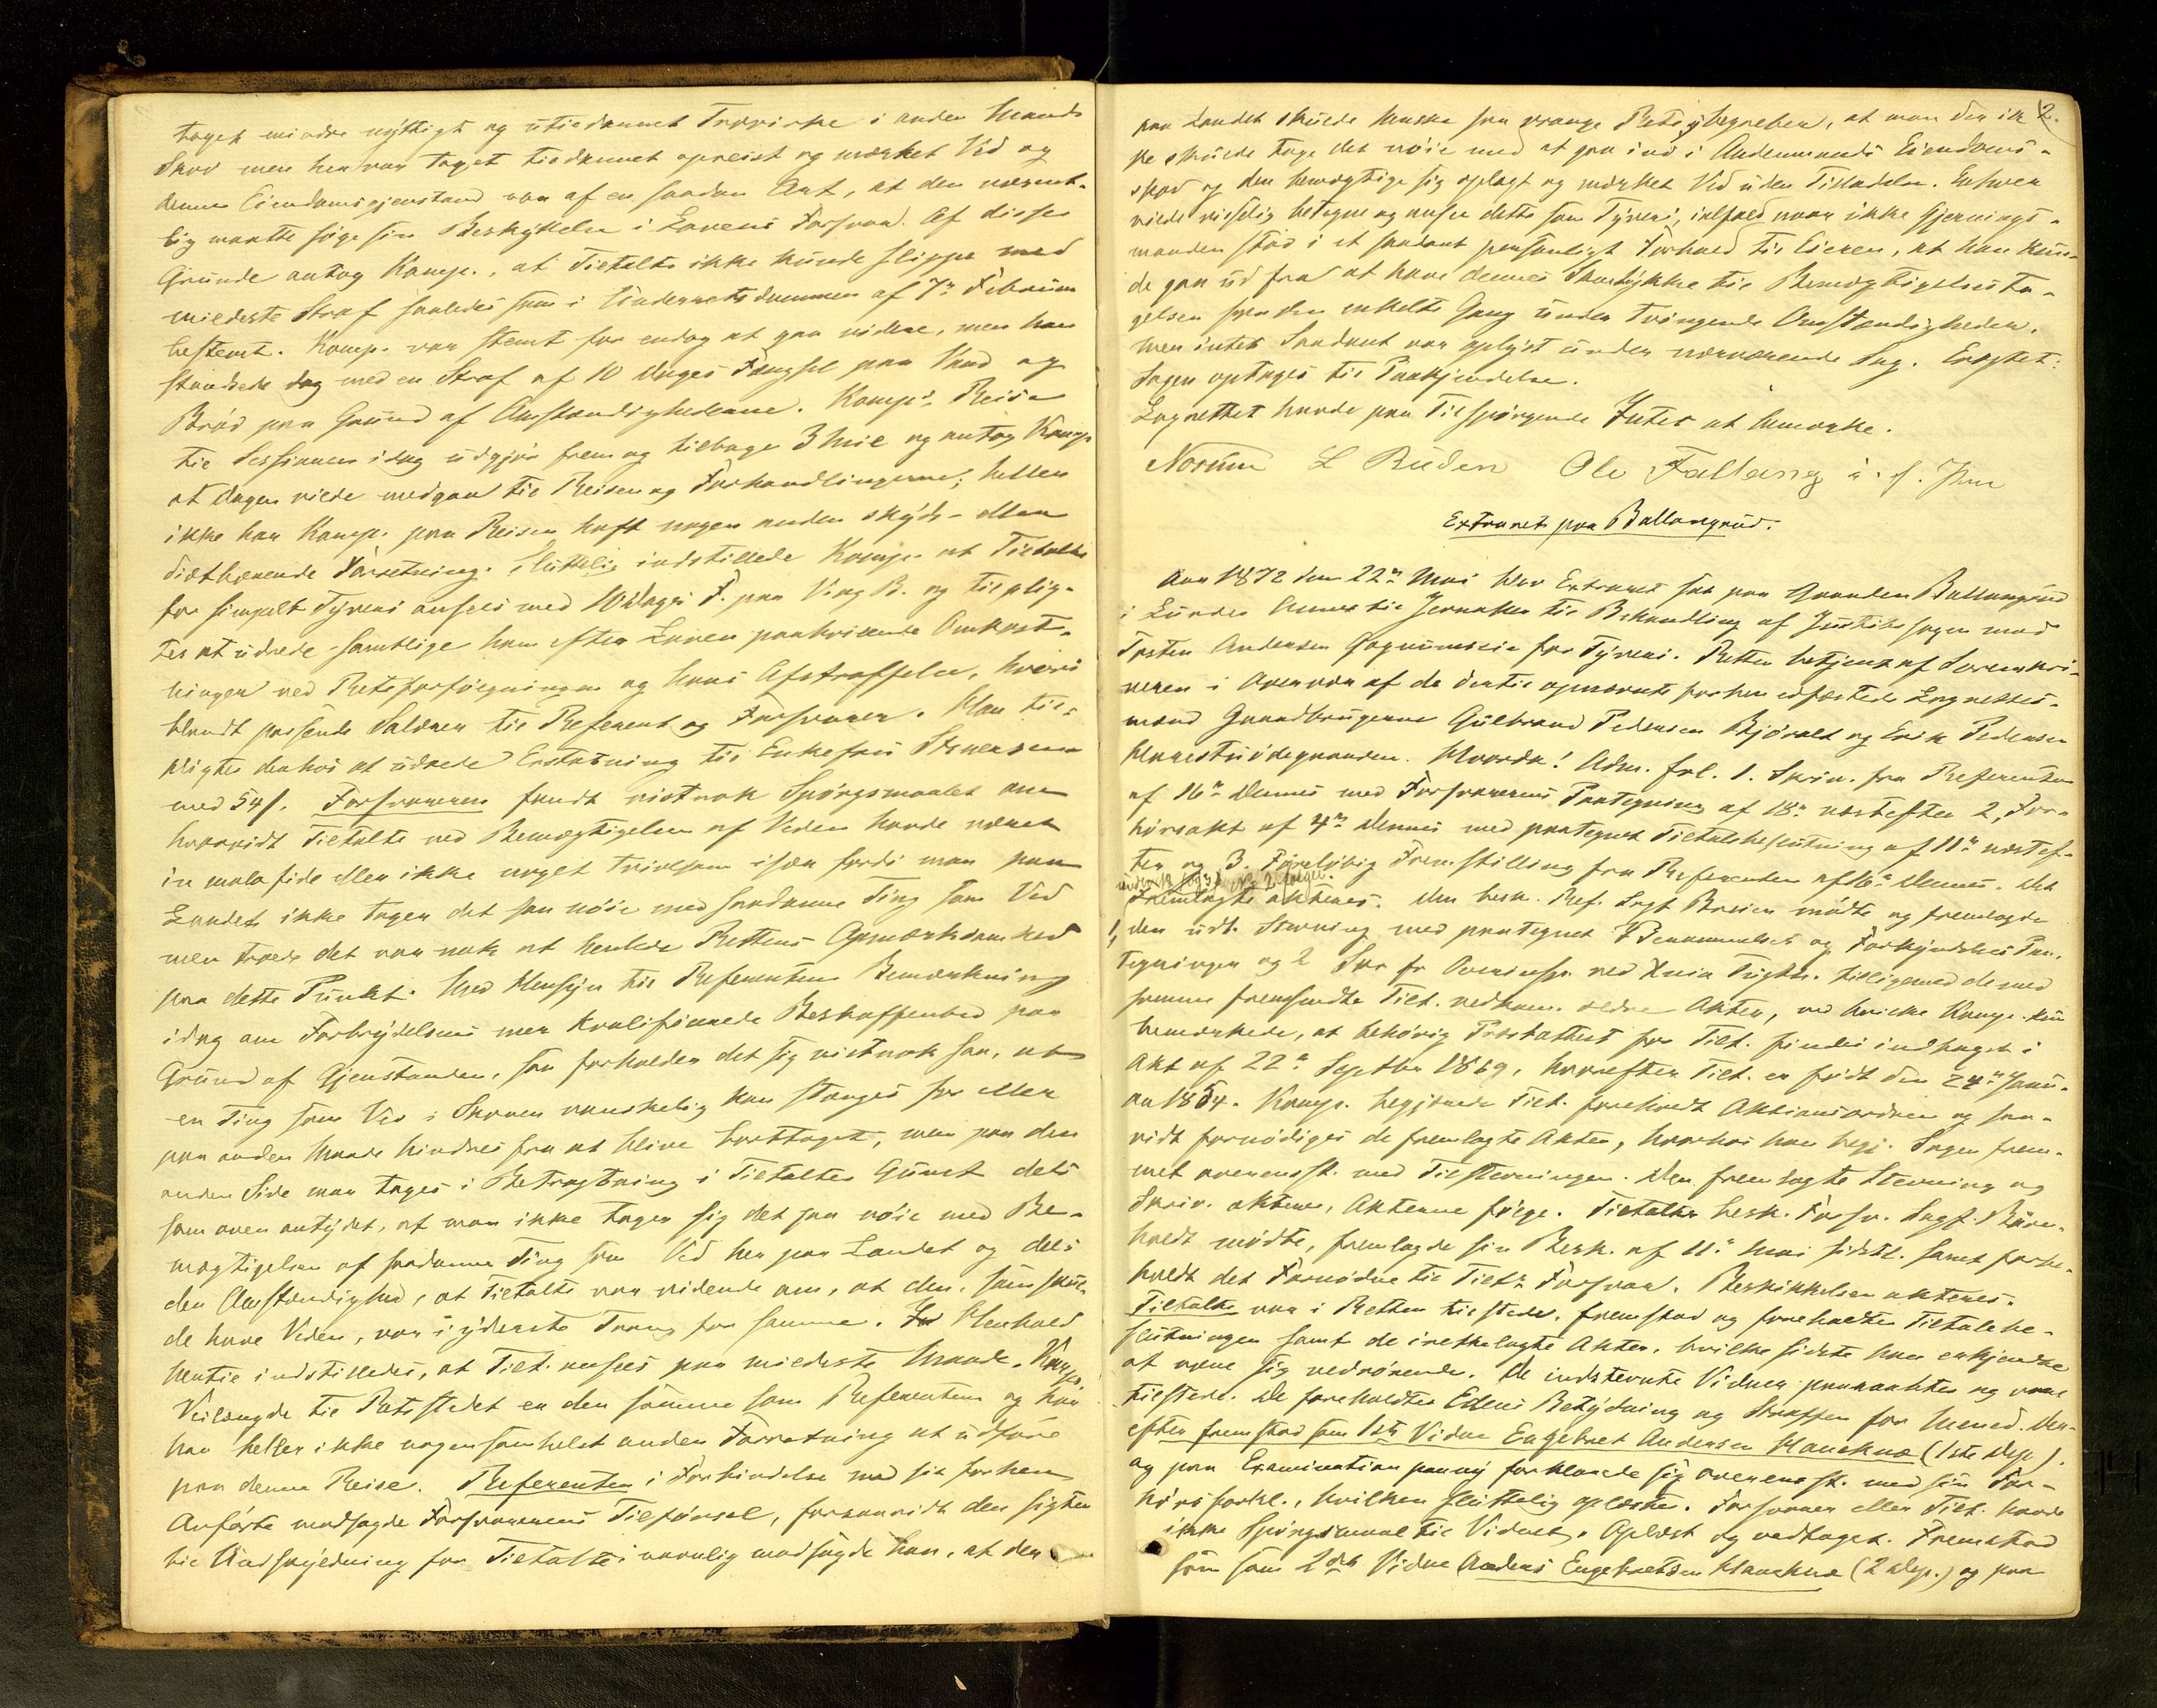 taget mindre nyttigt og utiedannet Trævirke i anden Mands
Skov men her var taget tiedannet opreist og mærket Ved og
denne Eiendomsgjenstand var af en saadan Art, at den væsent-
lig maatte søge sin Beskyttelse i Lovens Forsvar. Af disse
Grunde antog Komp., at Tieltalte ikke kunde slippe med
mildeste Straf saaledes som i Underretsdommen af 7de Februar
bestemt. Komp. var stemt for endog at gaa videre, men han
standsede dog med en Straf af 10 Dages Fængsel paa Vand og
Brød paa Grund af Omstændighederne. Komp's Reise
til Sessionen idag udgjør frem og tilbage 3 Mil og antog Komp
at dagen vilde medgaa til Reisen og Forhandlingerne; heller
ikke har Komp. paa Reisen haft nogen anden skyds- eller
diætbærende Forretning. Sluttelig indstillede Komp. at Tieltalte
for simpelt Tyveri ansees med 10 dages F. paa V. og B. og tilplig-
tes at udrede samtlige ham efter Loven paahvilende Omkost-
ninger ved Retsforfølgningen og hans Afstraffelse, hvori
blandt passende Salærer til Referent og Forsvarer. Han til-
pligtes derhos at udrede Erstatning til Enkefru Stenersen
med 54 s. Forsvareren fandt vistnok Spørgsmaalet om
hvorvidt Tieltalte ved Bemægtigelsen af Veden havde været
in mala fide eller ikke noget tvivlsom især fordi man paa
Landet ikke tager det saa nøie med saadanne Ting som Ved
men troede det var nok at henlede Rettens Opmærksomhed
paa dette Punkt. Med Hensyn til Referentens Bemærkning
idag om Forbrydelsens mer kvalificerede Beskaffenhed paa
Grund af Gjenstanden, saa forholder det sig vistnok saa, at
en Ting som Ved i Skoven vanskelig kan stænges for eller
paa anden Maade hindres fra at blive borttaget, men paa den
anden Side maa tages i Betragtning i Tieltaltes Gunst dels
som oven antydet, at man ikke tager sig det saa nøie med Be-
mægtigelsen af saadanne Ting som Ved her paa Landet og dels
den Omstændighed, at Tieltalte var vidende om, at den, som skul-
de have Veden, var i yderste Trang for samme. I Henhold
hertil indstilledes, at Tielt. ansees paa mildeste Maade. Komps.
Veilængde til Retsstedet er den samme som Referentens og han
har heller ikke nogensomhelst anden Forretning at udføre
paa denne Reise. Referenten i Forbindelse med sit forhen
Anførte modsagde Forsvarerens Tilførsel, forsaavidt den sigter
til Undskyldning for Tieltalte; navnlig modsagde han, at der
2.
paa Landet skulde herske saa vrange Retsbegreber, at man der ik
ke skulde tage det nøie med at gaa ind i Andenmands Eiendoms-
skov og der bemægtige sig oplagt og mærket Ved uden Tilladelse. Enhver
vilde visselig betegne og anse dette som Tyveri, ialfald naar ikke Gjernings-
manden stod i et saadant personligt Forhold til Eieren, at han kun-
de gaa ud fra at have dennes Samtykke til Bemægtigelsesta-
gelsen for den enkelte Gang under tvingende Omstændigheder.
Men intet Saadant var oplyst under nærværende Sag. Eragtet:
Sagen optages til Paakjendelse.
Lagrettet havde paa Tilspørgende Intet at bemærke.
Norum L Ruden Ole Fallang
Extraret paa Ballangrud.
Aar 1872 den 22de Mai blev Extraret sat paa Gaarden Ballangrud
i Lunder Annex til Jevnaker til Behandling af Justitssagen mod
Torsten Andersen for Tyveri. Retten betjent af Sorenskri-
veren i Overvær af de dertil opnævnte forhen edfæstede Lagrettes-
mænd Gaardbrugerne Gulbrand Pedersen Bjørvald og Erik Pedersen
. Hvorda! Adm. frl. 1. Skriv. fra Referenten
af 16de dennes med Forsvarerens Paategning af 18de næstefter 2, For-
hørsakt af 4de dennes med paategnet Tieltalebeslutning af 11te næstef-
ter og 3. Foreløbig Fremstilling fra Referenten af 16de dennes. Det
Fremlagte akteres. Den besk. Ref. Lagf. mødte og fremlagde
1, den udt. Stævning med paategnet Berammelses og Forkyndelses Paa-
tegninger og 2 Skr fr ved tilligemed de med
samme fremsendte Tielt. vedkom. ældre Akter, ved hvilke Komp. kun
bemærkede, at behørig Præsteattest for Tielt. findes indtaget i
Akt af 22de September 1869, hvorefter Tielt. er født den 24de Janu-
ar 1854. Komp. begjærede Tielt. foreholdt Aktionsordren og saa-
vidt fornødiges de fremlagte Akter, hvorhos han begj. Sagen frem-
met overensst. med Tilstævningen. Den fremlagte Stevning og
Skriv. akteres, Akterne følge. Tieltaltes besk. Forsv. Lagf.
holdt mødte, fremlagde sin Besk. af 11te Mai sidstl. samt forbe-
holdt det Fornødne til Tielts Forsvar. Beskikkelsen akteres.
Tieltalte var i Retten tilstede, fremstod og foreholdtes Tieltalebe-
slutningen samt de iretteslagte Akter, hvilke sidste han erkjendte
at være sig vedrørende. De indstevnte Vidner paaraabtes og vare
tilstede. De foreholdtes Edens Betydning og Straffen for Mened. Der-
efter fremstod som 1ste Vidne Engebret Andersen (1ste Dep).
og paa Examination paany forklarede sig overensst. med sin For-
hørsforkl., hvilken sluttelig oplæstes. Forsvarer eller Tielt. havde
ikke Spørgsmaal til Vidnet. Oplæst og vedtaget. Fremstod
saa som 2det Vidne Anders Engebretsen (2 Dep.) og paa